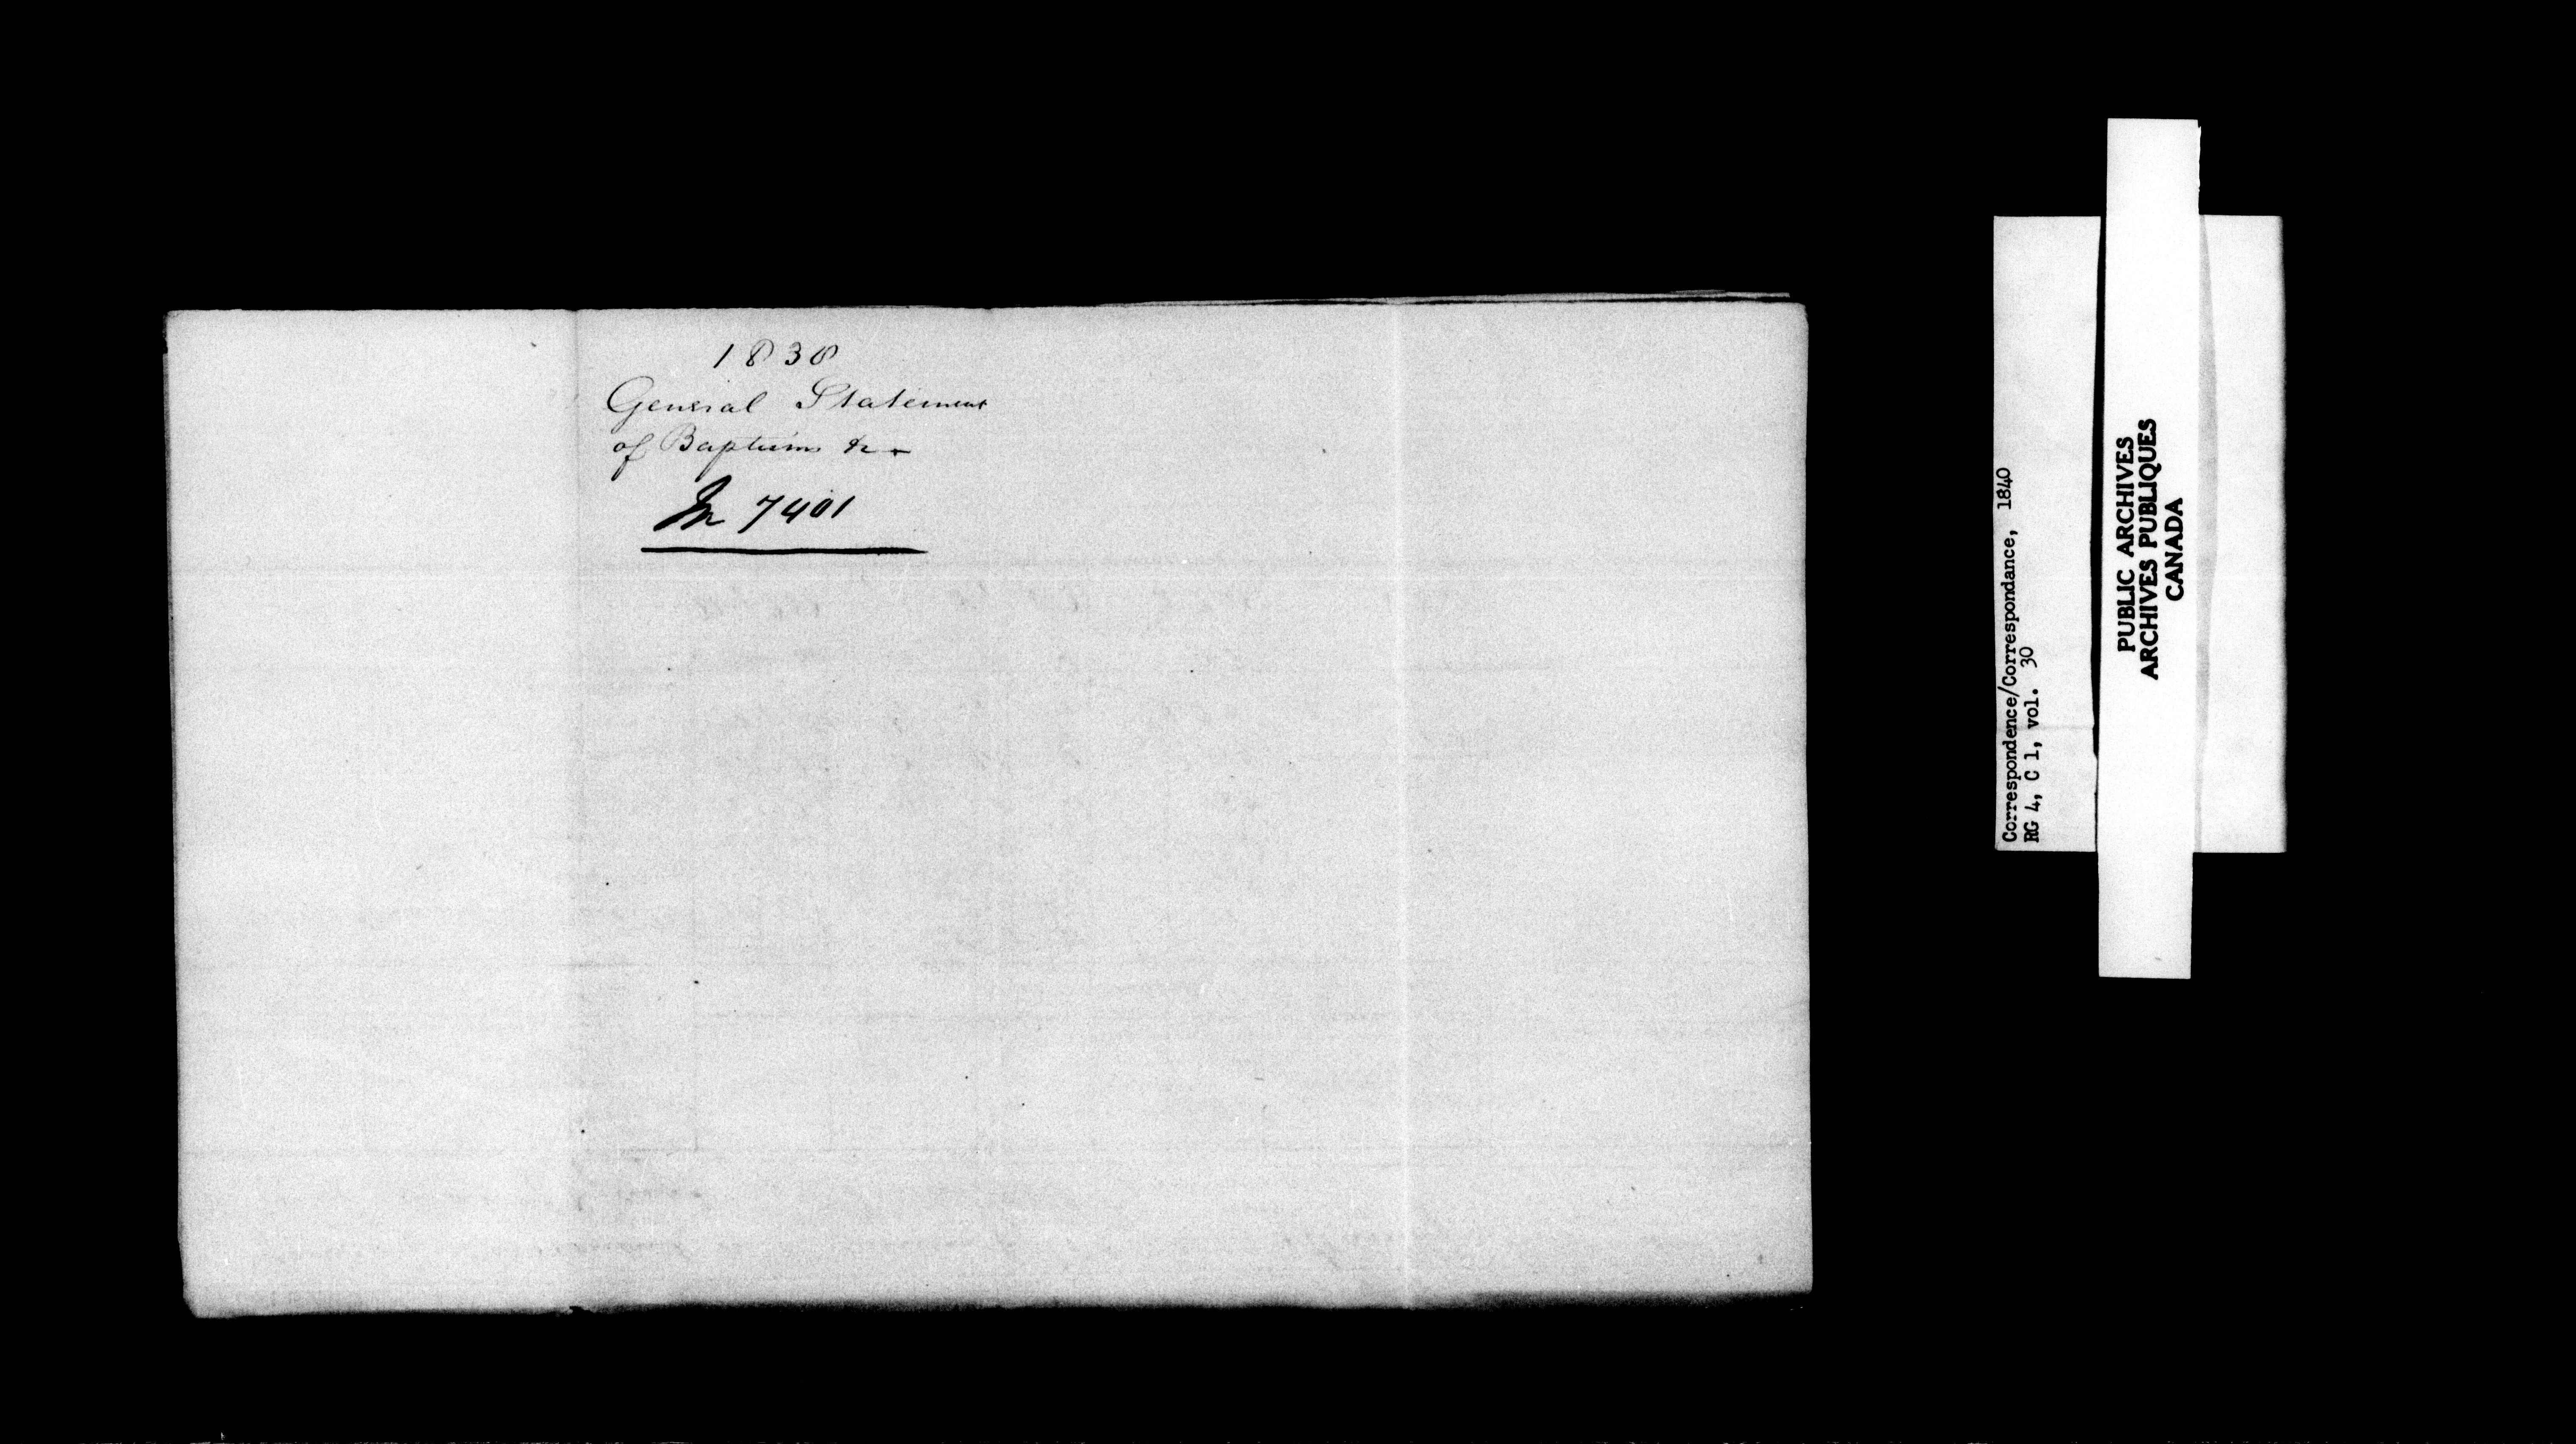 1838
General Statement
of Baptisms &c
In 7401
Correspondence/Correspondance, 1840
RG 4, C 1, vol. 30
PUBLIC ARCHIVES
ARCHIVES PUBLIQUES
CANADA